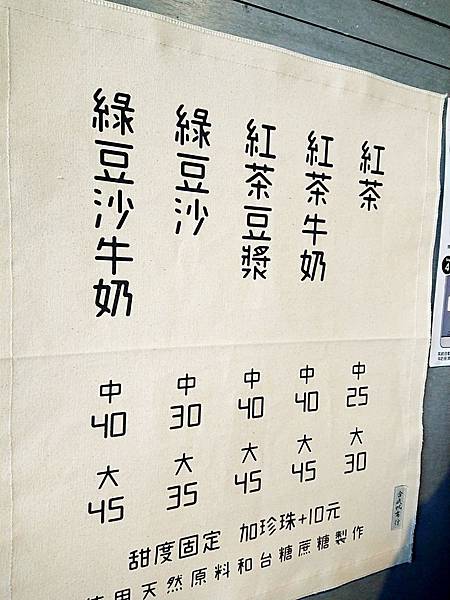 紅茶
中
25
大
30
紅茶牛奶
中
40
大
45
紅茶豆漿
中
40
大
45
綠豆沙
中
30
大
35
綠豆沙牛奶
中
40
大
45
甜度固定 加珍珠+10元
使用天然原料和台糖蔗糖製作